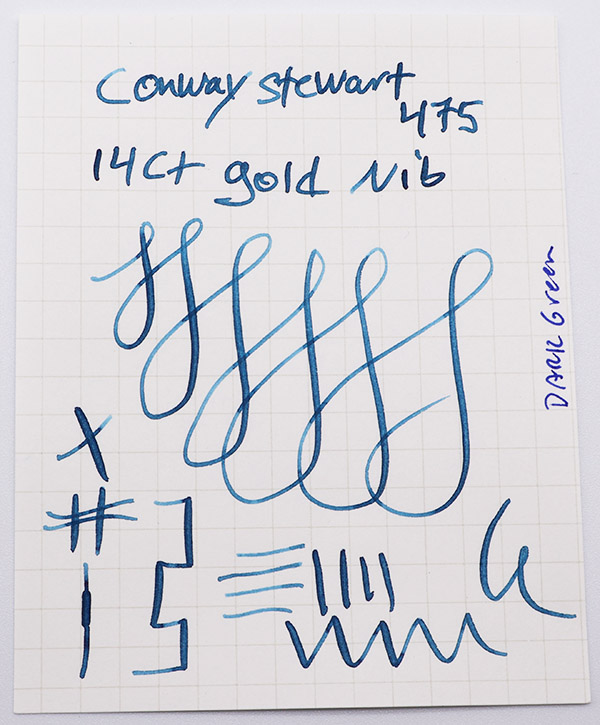 Conway Stewart
475
14Ct gold Nib
DARK Green